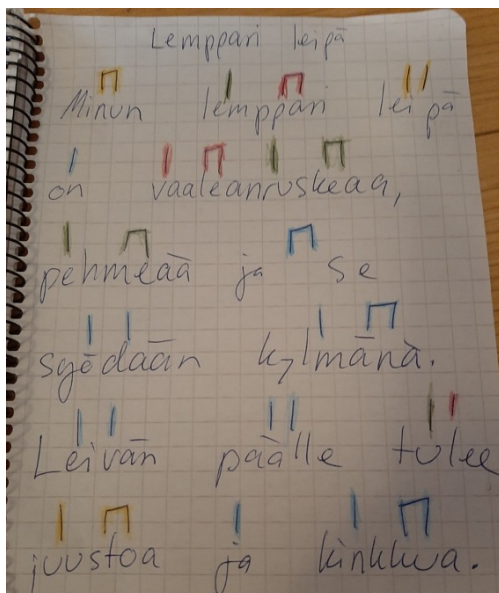 Lemppari leipä
Minun lemppari leipä
on vaaleanruskeaa,
pehmeää ja se
syödään kylmänä.
Leivän päälle tulee
juustoa ja kinkkua.